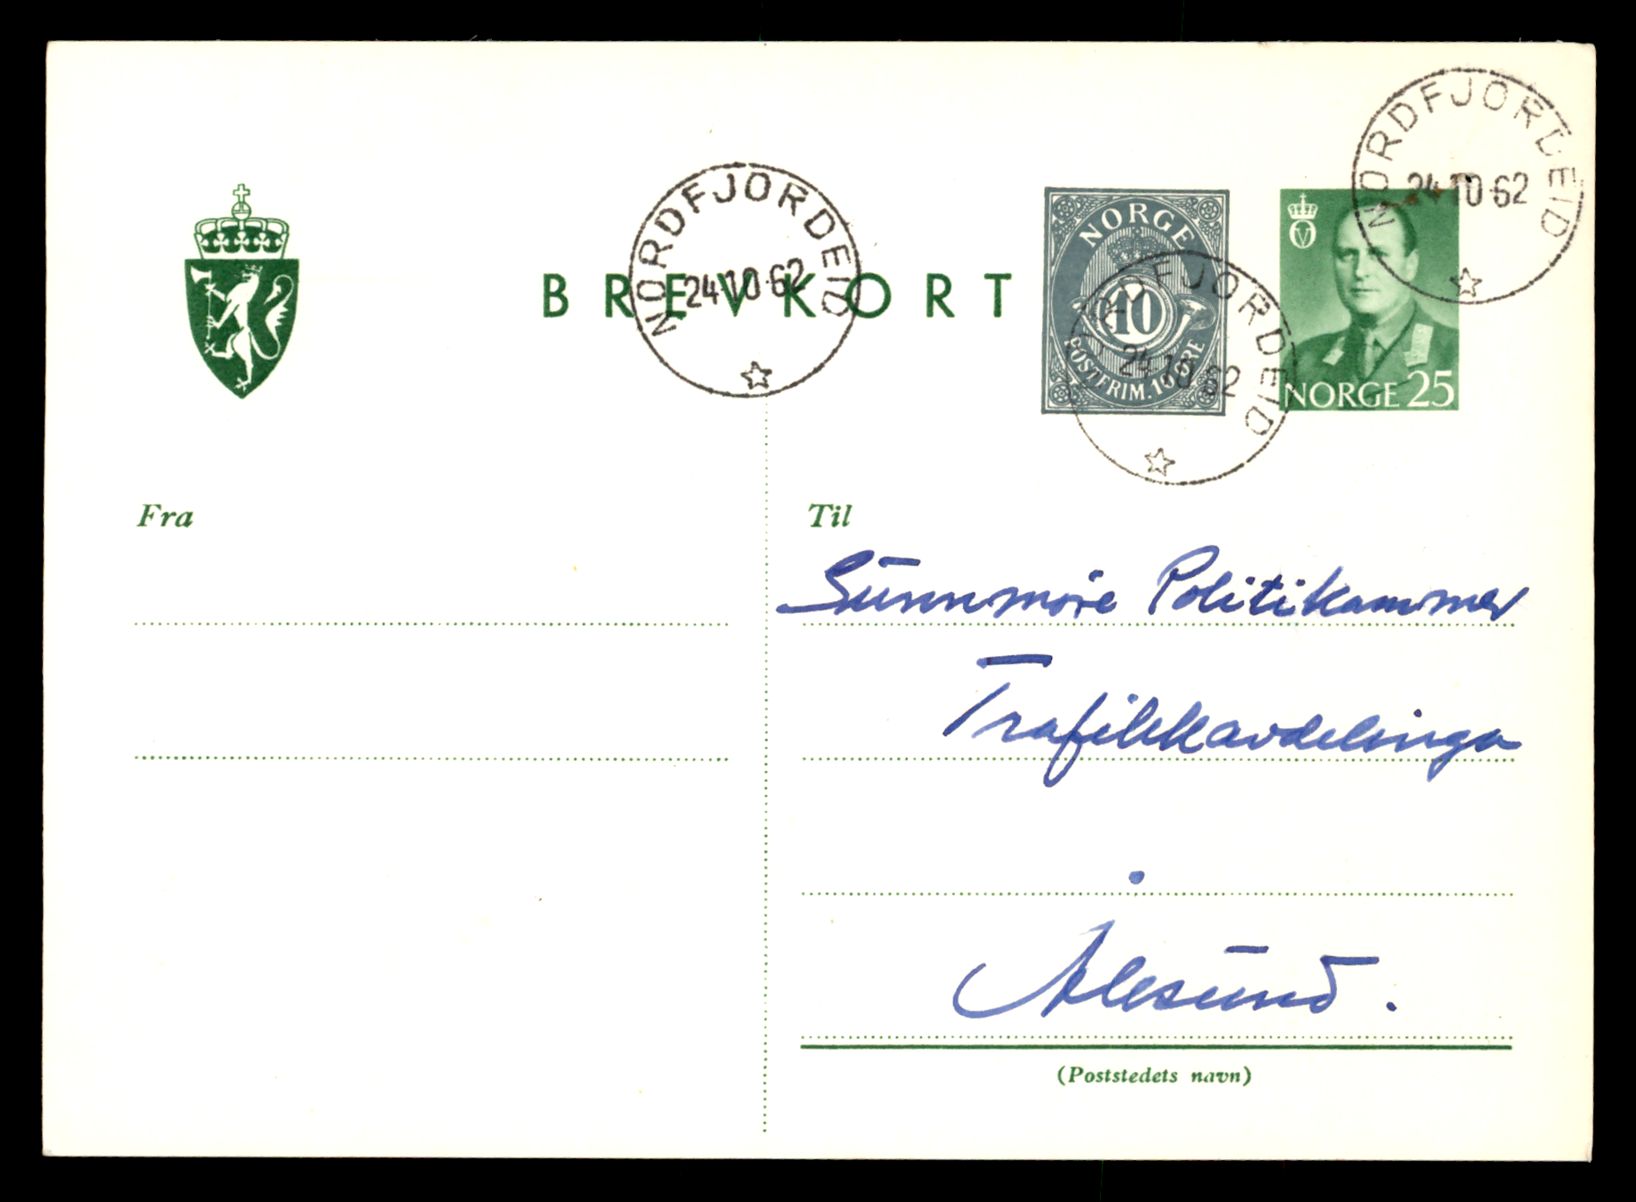 NORDFJORDEID
24.10.62
NORDFJORDEID
24.10.62
NORGE
10
POSTFRIM. 10 ØRE
NORDFJORDEID
24.10.62
V
NORGE 25
BREVKORT
Fra
Til
Sunnmøre Politikammer
Trafikkavdelinga
Ålesund.
(Poststedets navn)